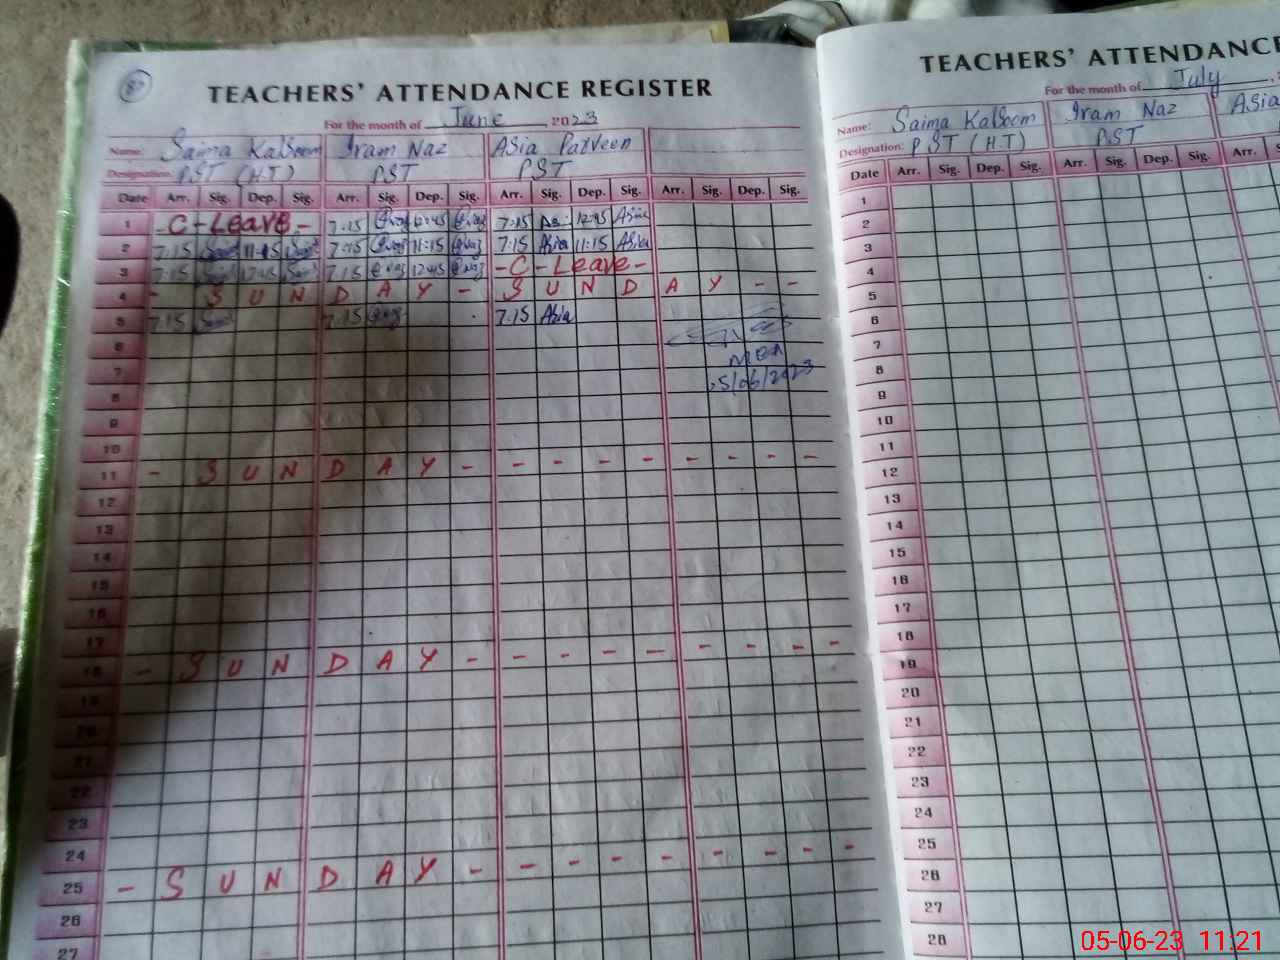 82
TEACHERS' ATTENDANCE REGISTER
For the month of June 2023
Name: Saima Kalsoom Iram Naz Asia Parveen
Designation: PST (H.T) PST PST
Date Arr. Sig. Dep. Sig. Arr. Sig. Dep. Sig. Arr. Sig. Dep. Sig. Arr. Sig. Dep. Sig.
1 - C - Leave - 7:15 12:45 7:15 As 12:45 Asia
2 7:15 11:15 7:15 11:15 7:15 Asia 11:15 Asia
3 7:15 12:45 7:15 12:45 - C - Leave -
4 - S U N D A Y - S U N D A Y - -
5 7:15 7:15 7:15 Asia
6
7 MEA
8 05/06/2023
9
10
11 - S U N D A Y - - - - - - - - -
12
13
14
15
16
17
18 - S U N D A Y - - - - - - - - -
19
20
21
22
23
24
25 - S U N D A Y - - - - - - - - -
26
27
TEACHERS' ATTENDANCE
For the month of July
Name: Saima Kalsoom Iram Naz Asia
Designation: PST (H.T) PST
Date Arr. Sig. Dep. Sig. Arr. Sig. Dep. Sig. Arr.
1
2
3
4
5
6
7
8
9
10
11
12
13
14
15
16
17
18
19
20
21
22
23
24
25
26
27
28
05-06-23 11:21